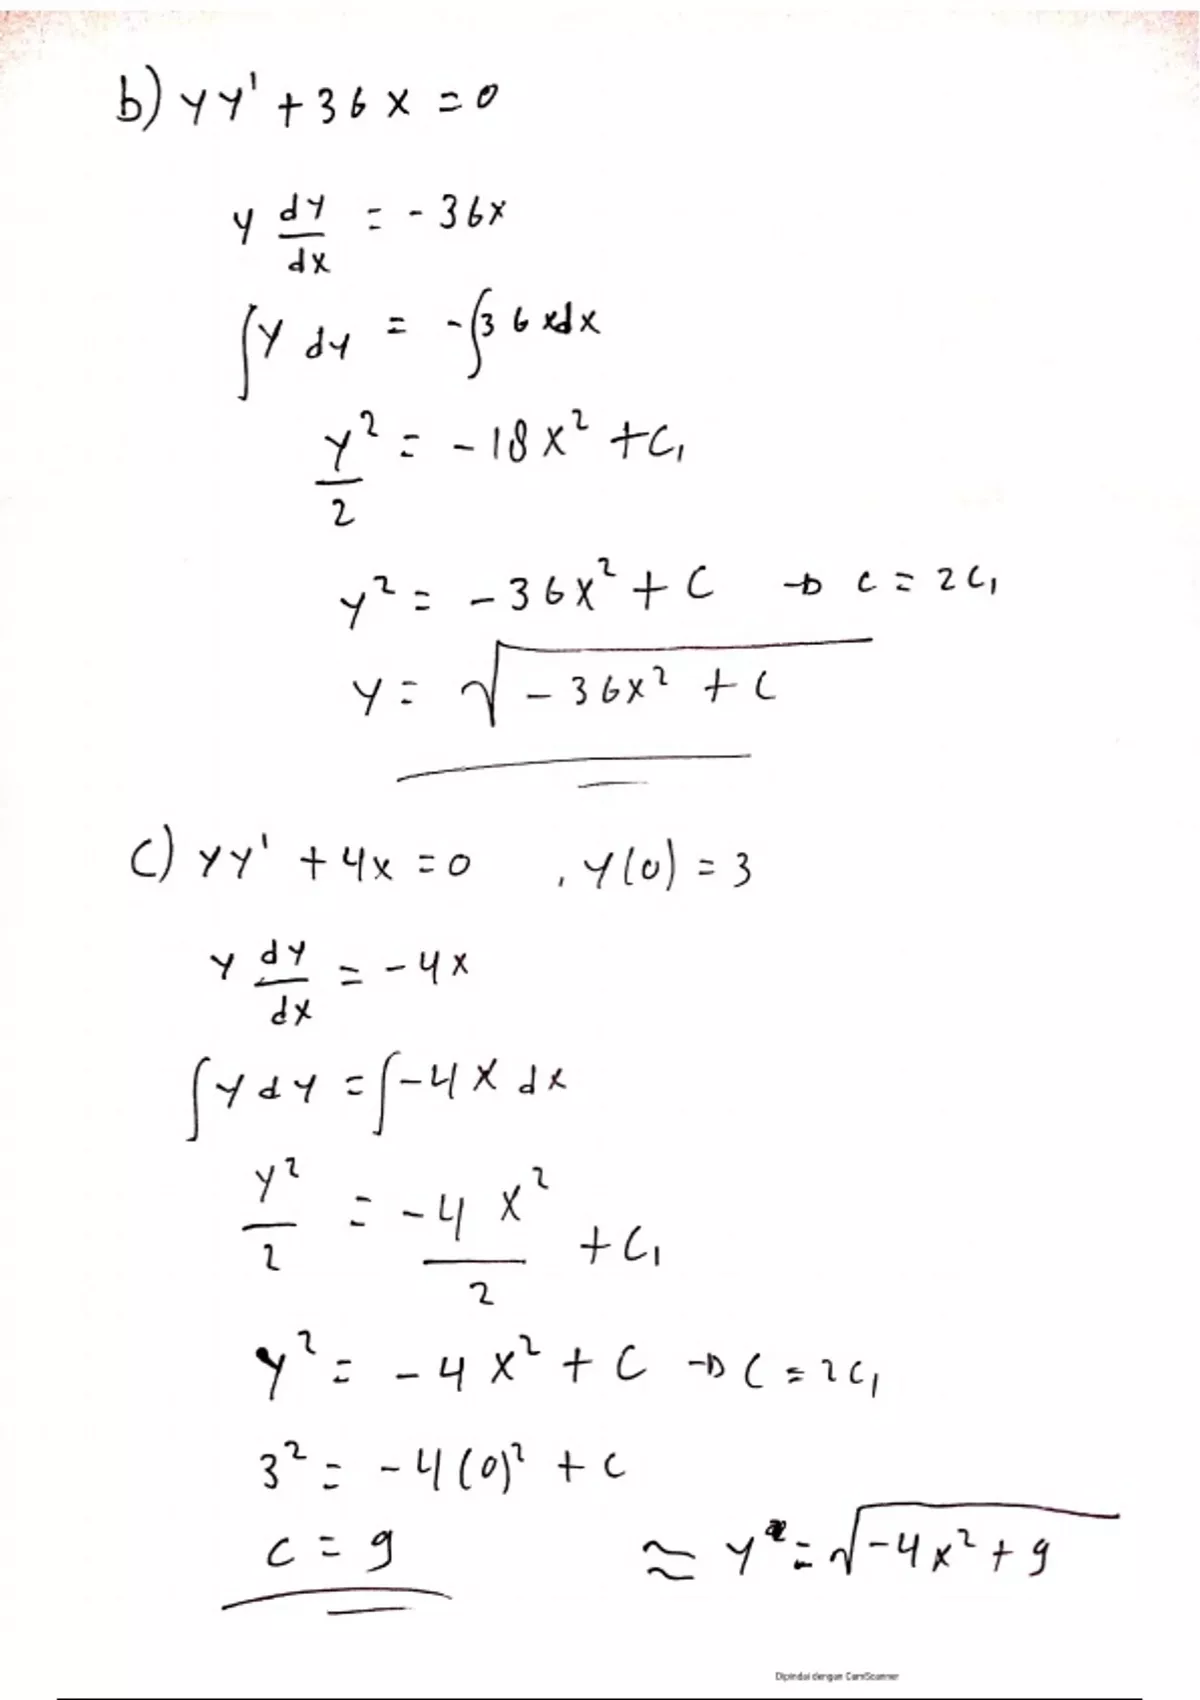 b) yy' + 36x = 0
y dy/dx = -36x
∫y dy = -∫36xdx
y²/2 = -18x² + C₁
y² = -36x² + C → C = 2C₁
y = √(-36x² + C)
c) yy' + 4x = 0 , y(0) = 3
y dy/dx = -4x
∫y dy = ∫-4x dx
y²/2 = -4x²/2 + C₁
y² = -4x² + C → C = 2C₁
3² = -4(0)² + C
C = 9 ≈ y = √(-4x² + 9)
Dipindai dengan CamScanner